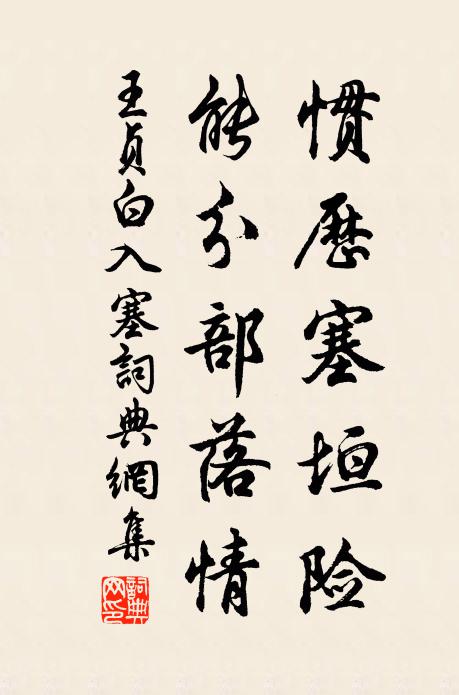 惯歷塞垣险
能分部落情
王貞白入塞詞典網集
詞典網印